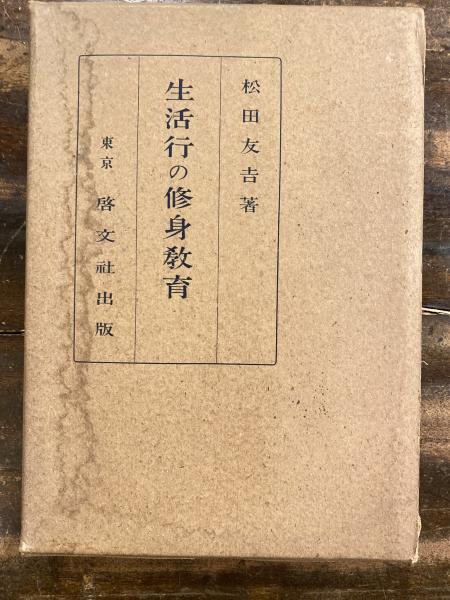 松田友𠮷著
生活行の修身教育
東京 啓文社出版